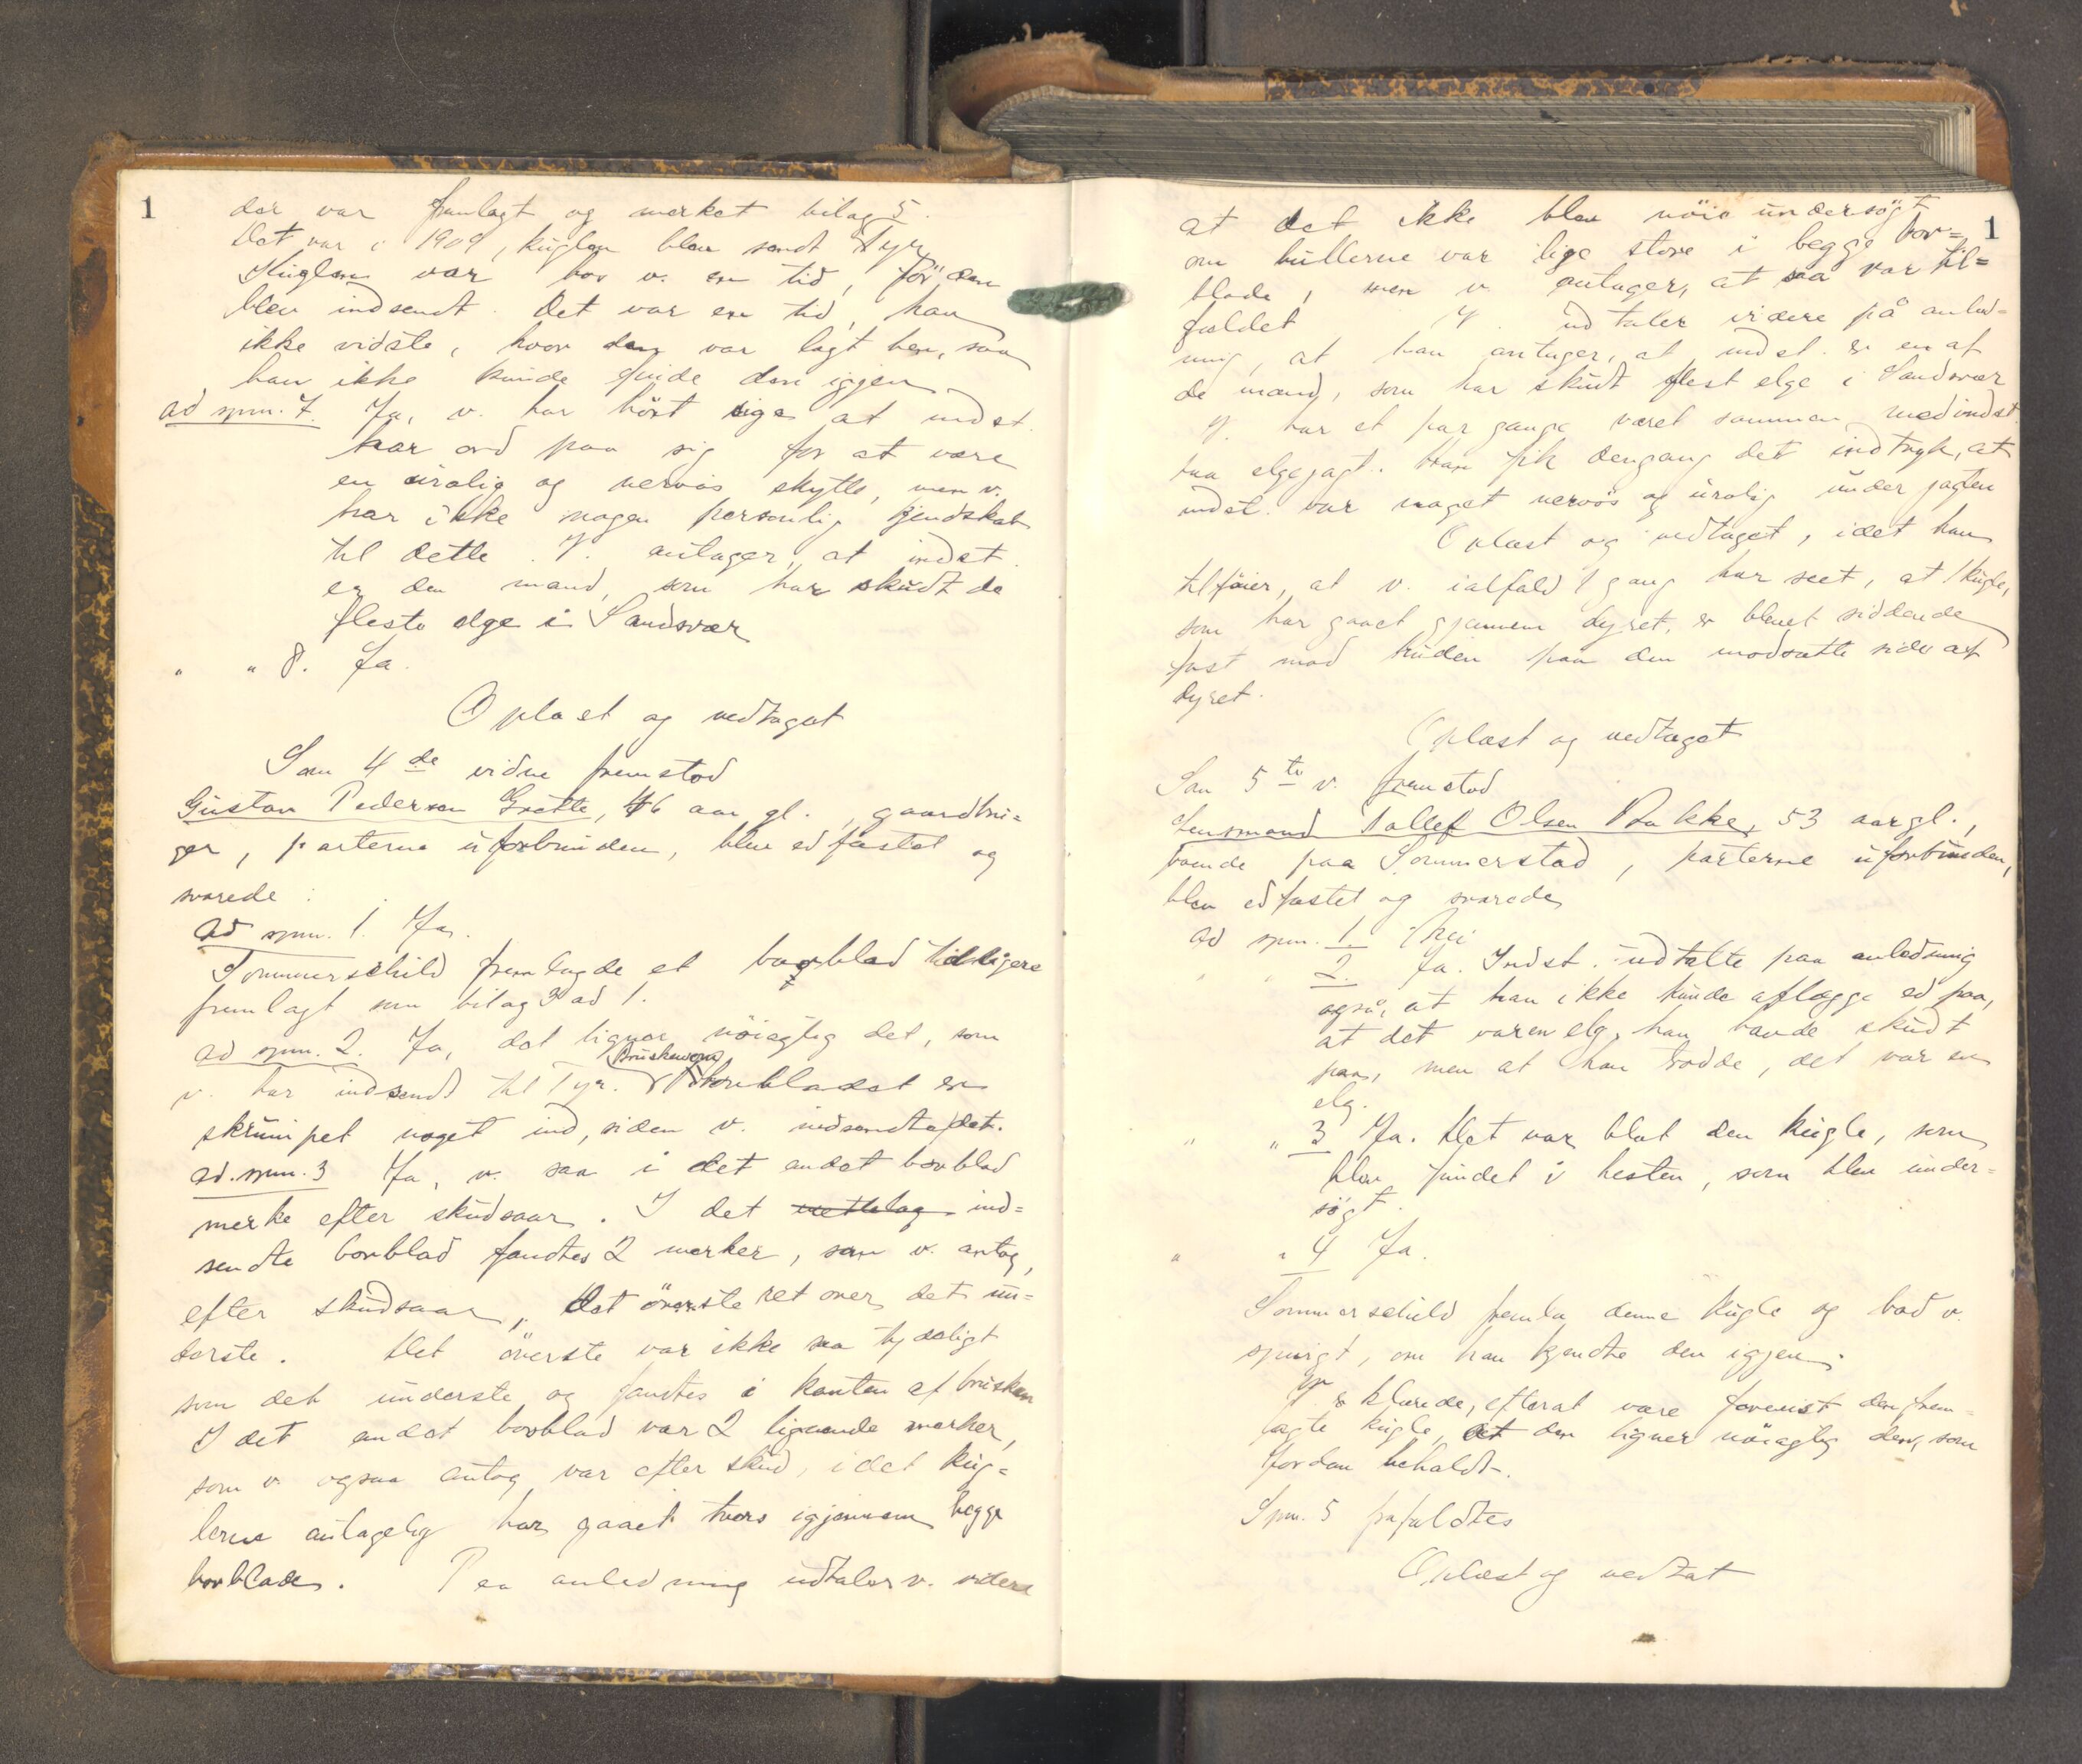 1
der var fremlagt og merket bilag 5.
Det var i 1909, kuglen blev sendt Tyr.
Kuglen var hos v. en tid, før den
blev indsendt. Det var en tid, han
ikke vidste, hvor den var lagt hen, saa
han ikke kunde finde den igjen.
ad spm. 7. Ja, v. har hört sige at indst.
har ord paa sig for at være
en urolig og nervös skytte, men v.
har ikke nogen personlig kjendskab
til dette. V. antager, at indst.
er den mand, som har skudt de
fleste elge i Sandsvær
" " 8. Ja.
Oplæst og vedtaget
Som 4de vidne fremstod
Gustav Pedersen Grette, 46 aar gl., gaardbru=
ger, parterne uforbunden, blev edfæstet og
svarede:
ad spm. 1. Ja.
Sommerschild fremlagde et bovblad tidligere
fremlagt som bilag 3 ad 1.
ad spm. 2. Ja, det ligner nöiagtig det, som
v. har indsendt til Tyr. Brusken paa bovbladet er
skrumpet noget ind, siden v. indsendte det.
ad. spm. 3 Ja, v. saa i det andet bovblad
merke efter skudsaar. I det ind=
sendte bovblad fandtes 2 merker, som v. antog,
efter skudsaar, det överste ret over det un=
derste. Det överste var ikke saa tydeligt
som det underste og fandtes i kanten af brusken
I det andet bovblad var 2 lignende merker,
som v. ogsaa antog var efter skud, idet kug=
lerne antagelig har gaaet tvers igjennem begge
bovblade. Paa anledning udtaler v. videre
1
at det ikke blev nöie undersögt
om hullerne var lige store i begge bov=
blade, men v. antager, at saa var til=
fældet. V. udtaler videre på anled=
ning, at han antager, at indst. er en af
de mænd, som har skudt flest elge i Sandsvær
V. har et par gange været sammen med indst.
paa elgejagt. Han fik dengang det indtryk, at
indst. var meget nervös og urolig under jagten
Oplæst og vedtaget, idet han
tilföier, at v. ialfald 1 gang har seet, at 1 kugle,
som har gaaet gjennem dyret, er blevet siddende
fast mod huden paa den modsatte side af
dyret.
Oplæst og vedtaget
Som 5te v. fremstod
Lensmand Tollef Olsen Bakke, 53 aar gl.,
boende paa Sommerstad, parterne uforbunden,
blev edfæstet og svarede
ad spm. 1. Nei
" " 2. Ja. Indst. udtalte paa anledning
også, at han ikke kunde aflægge ed paa,
at det var en elg, han havde skudt
paa, men at han trodde, det var en
elg.
" " 3 Ja. Det var blot den kugle, som
blev fundet i hesten, som blev under=
sögt.
" " 4 Ja.
Sommerschild fremla denne kugle og bad v.
spurgt, om han kjendte den igjen.
V. erklærede, efterat være forevist den frem=
lagte kugle, at den ligner nöiagtig den, som
Spm. 5 frafaldtes
Oplæst og vedtat